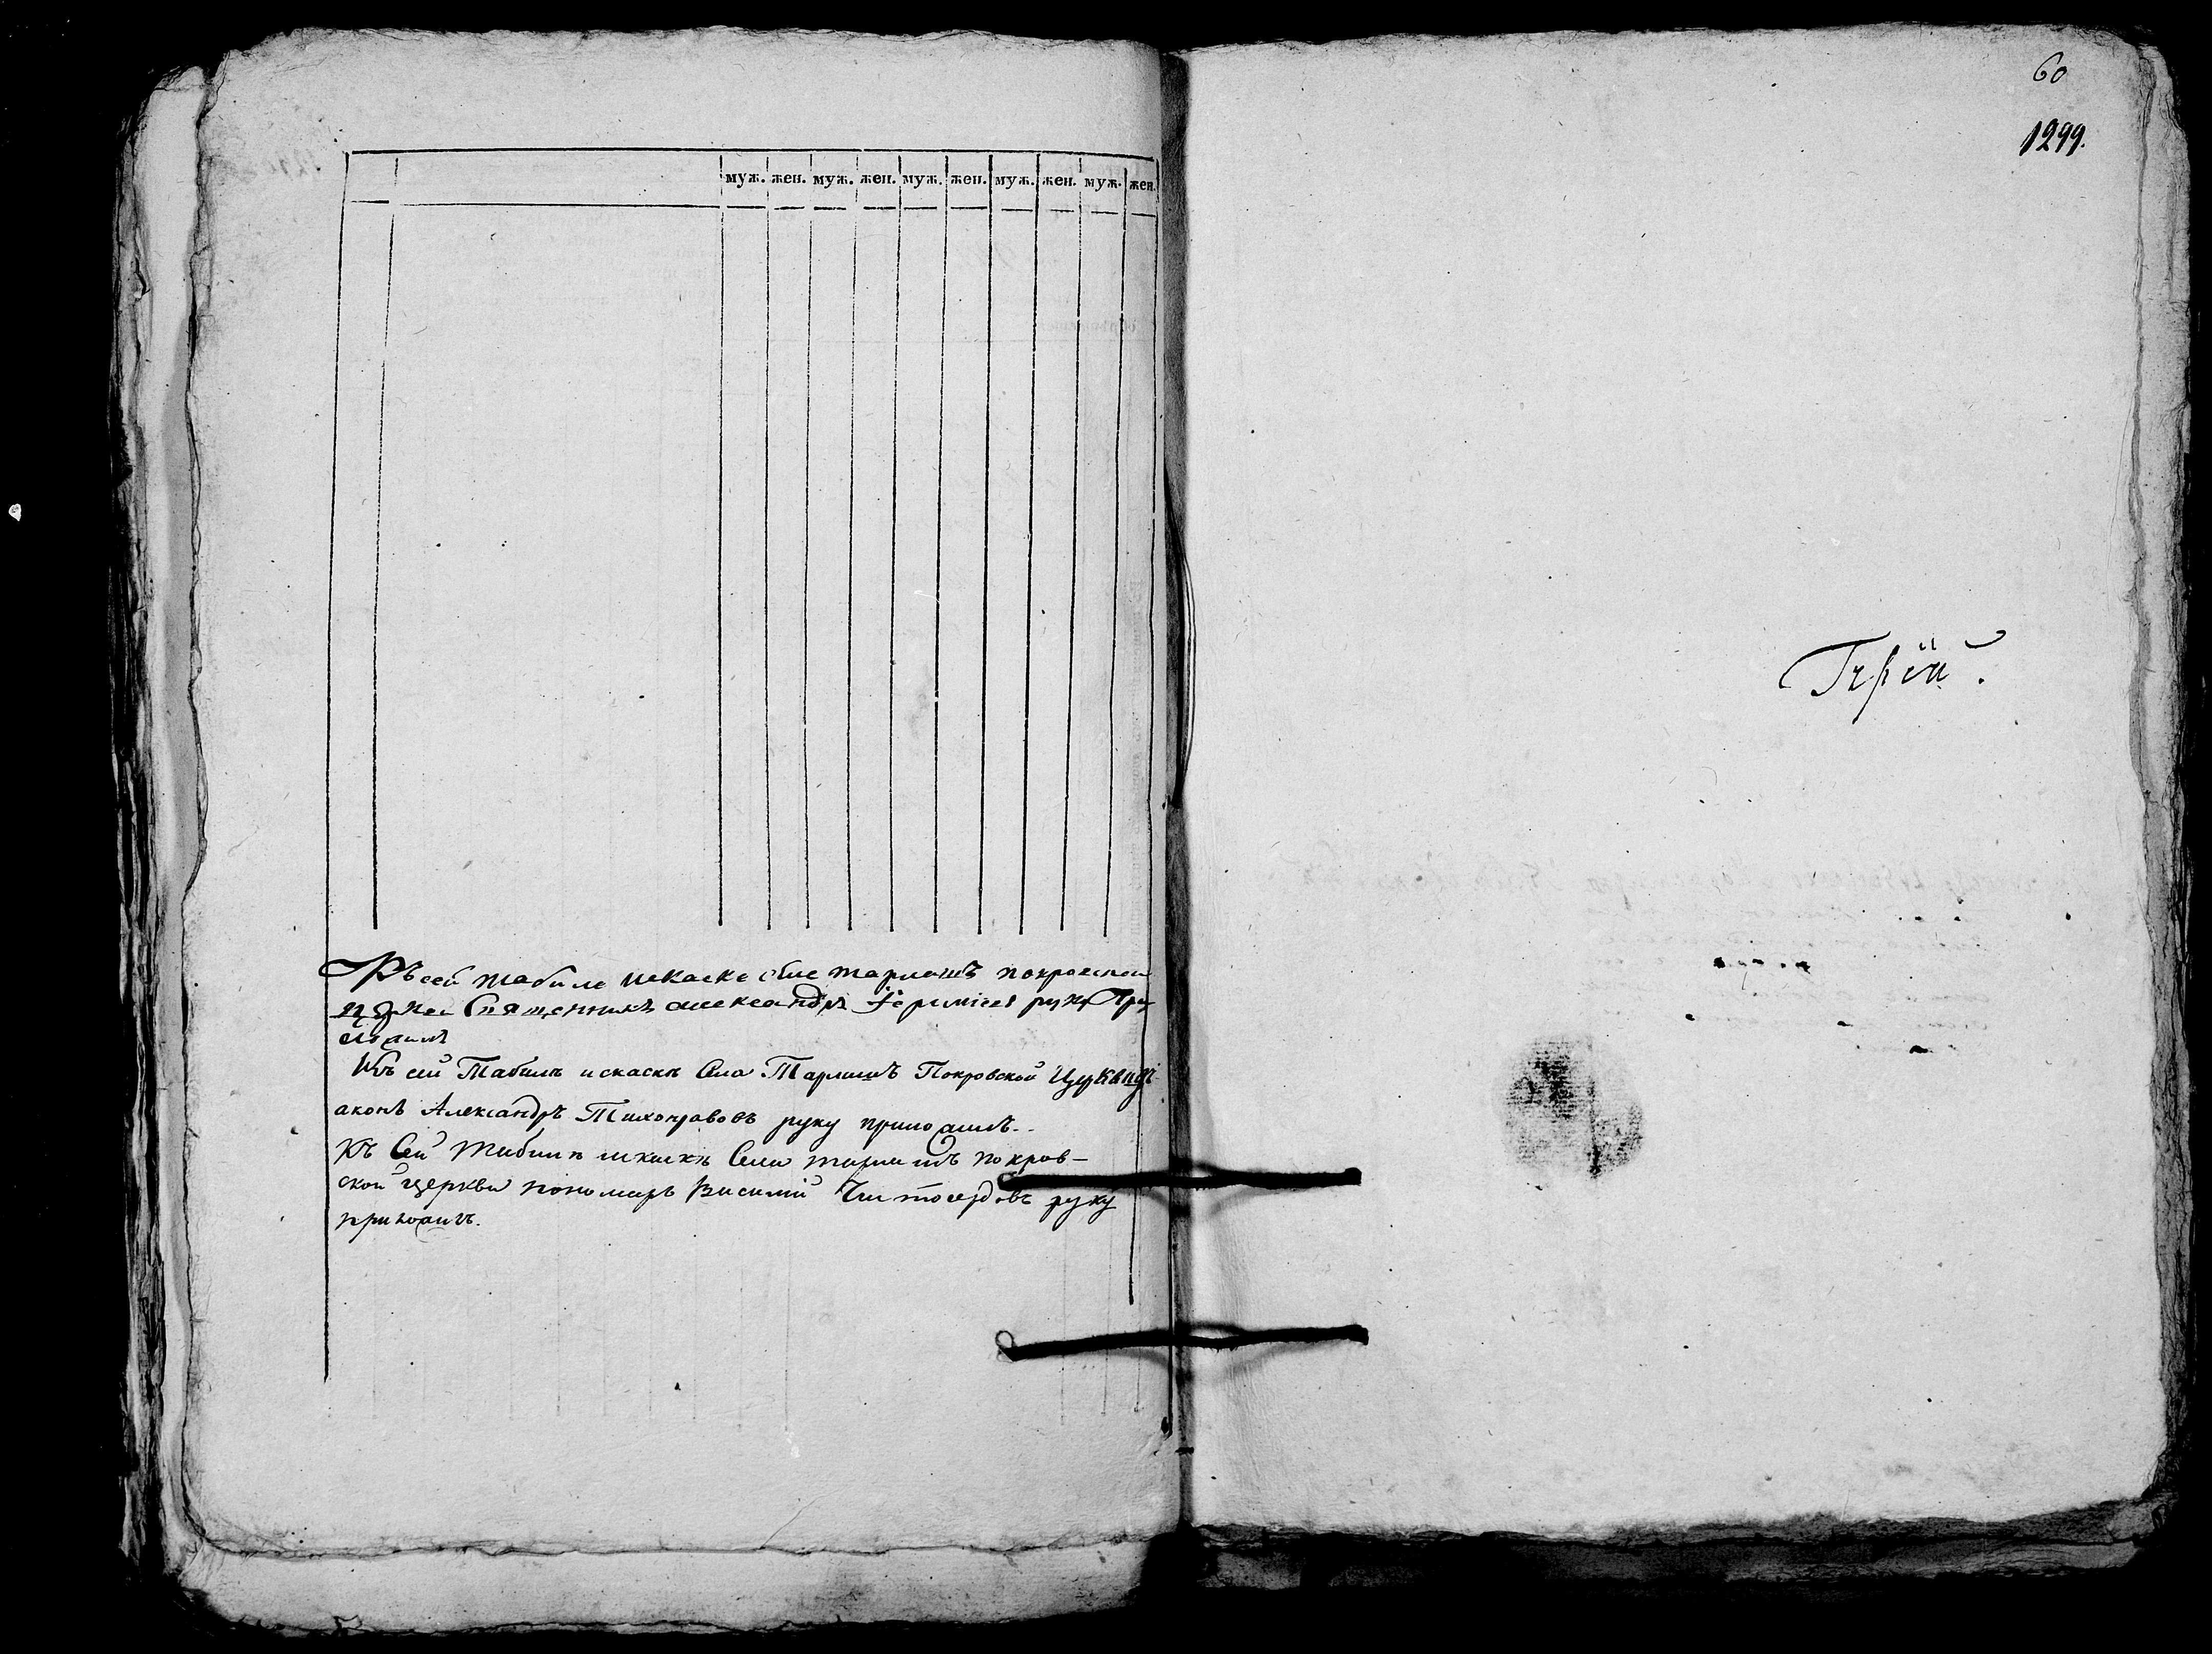 60
1299.
муж. жен. муж. жен. муж. жен. муж. жен. муж. жен.
Къ сей табиле искаске села тарлашъ покровской
Священникъ александръ руку при
ложилъ
Къ сей Табилѣ и скаскѣ Села Тарлашъ Покровской Церкви дь
аконъ Александръ Тихонравовъ руку приложилъ.
Къ Сей табили искаскѣ Села тарлашъ покров-
ской церкви пономарь Василий Чистосердовъ руку
приложилъ.